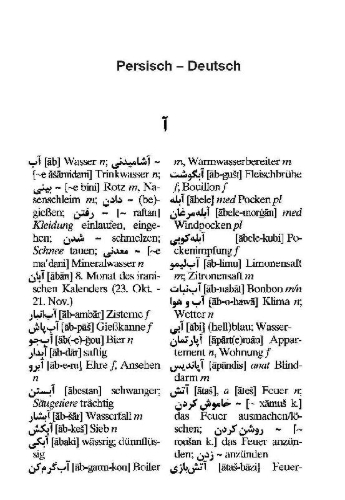 Persisch – Deutsch
آ
آب [āb] Wasser n; آشامیدنی ~
[~e āšāmidani] Trinkwasser n;
بینی ~ [~e bini] Rotz m, Na-
senschleim m; دادن ~ (be)-
gießen; رفتن ~ [~ raftan]
Kleidung einlaufen, einge-
hen; شدن ~ schmelzen;
Schnee tauen; معدنی ~ [~e
ma'dani] Mineralwasser n
آبان [ābān] 8. Monat des irani-
schen Kalenders (23. Okt. -
21. Nov.)
آب‌انبار [āb-ambār] Zisterne f
آب‌پاش [āb-pāš] Gießkanne f
آب‌جو [āb(-e)-ğou] Bier n
آبدار [āb-dār] saftig
آبرو [āb-e-ru] Ehre f, Ansehen
n
آبستن [ābestan] schwanger;
Säugetiere trächtig
آبشار [āb-šār] Wasserfall m
آبکش [āb-keš] Sieb n
آبکی [ābaki] wässrig; dünnflüs-
sig
آب‌گرم‌کن [āb-garm-kon] Boiler
m, Warmwasserbereiter m
آبگوشت [āb-gušt] Fleischbrühe
f, Bouillon f
آبله [ābele] med Pocken pl
آبله‌مرغان [ābele-morğān] med
Windpocken pl
آبله‌کوبی [ābele-kubi] Po-
ckenimpfung f
آب‌لیمو [āb-limu] Limonensaft
m; Zitronensaft m
آب‌نبات [āb-nabāt] Bonbon m/n
آب و هوا [āb-o-hawā] Klima n;
Wetter n
آبی [ābi] (hell)blau; Wasser-
آپارتمان [āpārt(e)mān] Appar-
tement n, Wohnung f
آپاندیس [āpāndis] anat Blind-
darm m
آتش [ātaš], a [āteš] Feuer n;
خاموش کردن ~ [~ xāmuš k.]
das Feuer ausmachen/lö-
schen; روشن کردن ~ [~
roušan k.] das Feuer anzün-
den; زدن ~ anzünden
آتش‌بازی [ātaš-bāzi] Feuer-